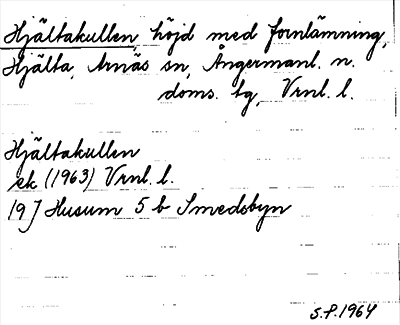 Hjältakullen, höjd med fornlämning,
Hjälta, Arnäs sn, Ångermanl. n.
doms. tg, Vrnl. l.
Hjältakullen
ek (1963) Vrnl. l.
19J Husum 5 b Smedsbyn
S.P. 1964